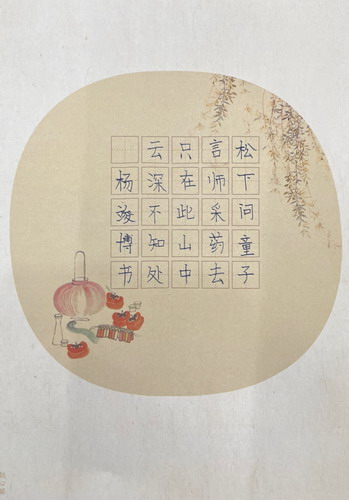 松下问童子
言师采药去
只在此山中
云深不知处
杨竣博书